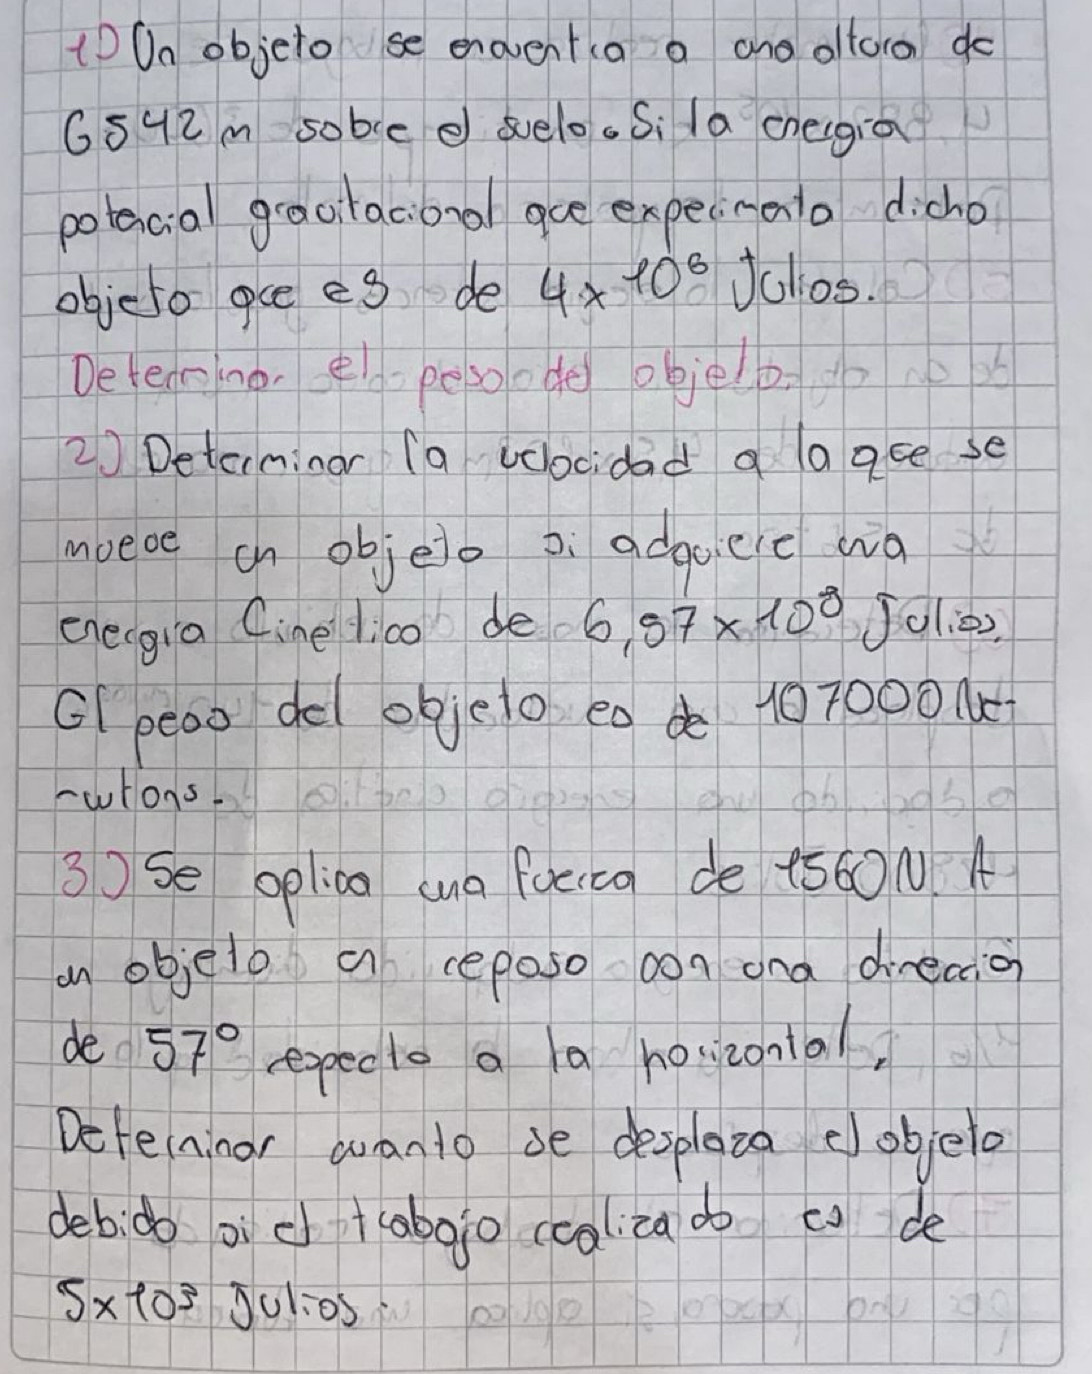 1) Un objeto se encuentra a una altura de
6542 m sobre el suelo. Si la energia
potencial gravitacional que experimenta dicho
objeto que es de 4x10⁸ Julios.
Determinar el peso del objeto.
2) Determinar la velocidad a la que se
mueve un objeto si adquiere una
energia Cinetica de 6,87x10⁸ Julios.
El peso del objeto es de 107000 Ne-
-wtons.
3) Se aplica una fuerza de 1560 N. A
un objeto en reposo con una dirección
de 57° respecto a la horizontal,
Determinar cuanto se desplaza el objeto
debido si el trabajo realizado es de
5x10³ Julios.